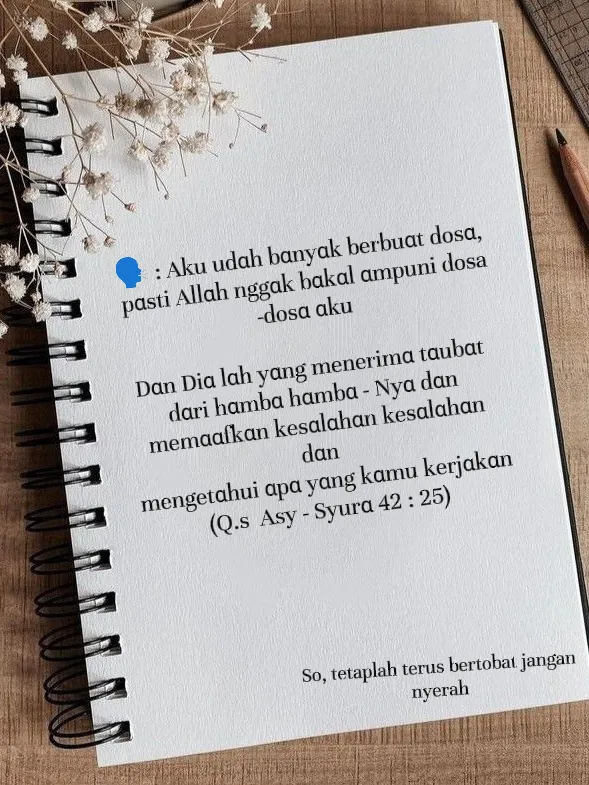 🗣️ : Aku udah banyak berbuat dosa,
pasti Allah nggak bakal ampuni dosa
-dosa aku
Dan Dia lah yang menerima taubat
dari hamba hamba - Nya dan
memaafkan kesalahan kesalahan
dan
mengetahui apa yang kamu kerjakan
(Q.s Asy - Syura 42 : 25)
So, tetaplah terus bertobat jangan
nyerah